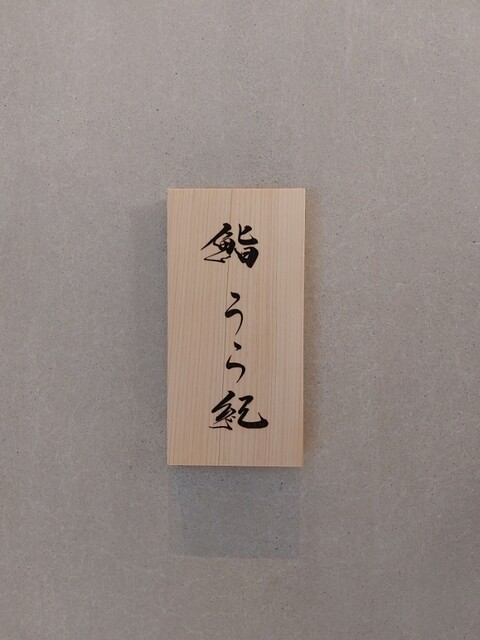 鮨うら紀